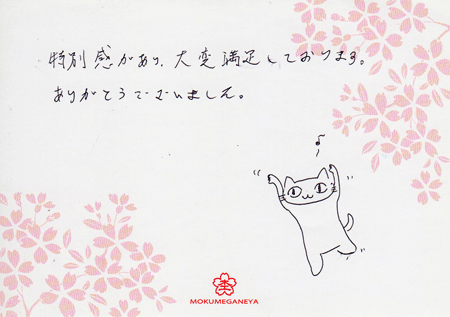 特別感があり、大変満足しております。
ありがとうございました。
♪
杢
MOKUMEGANEYA